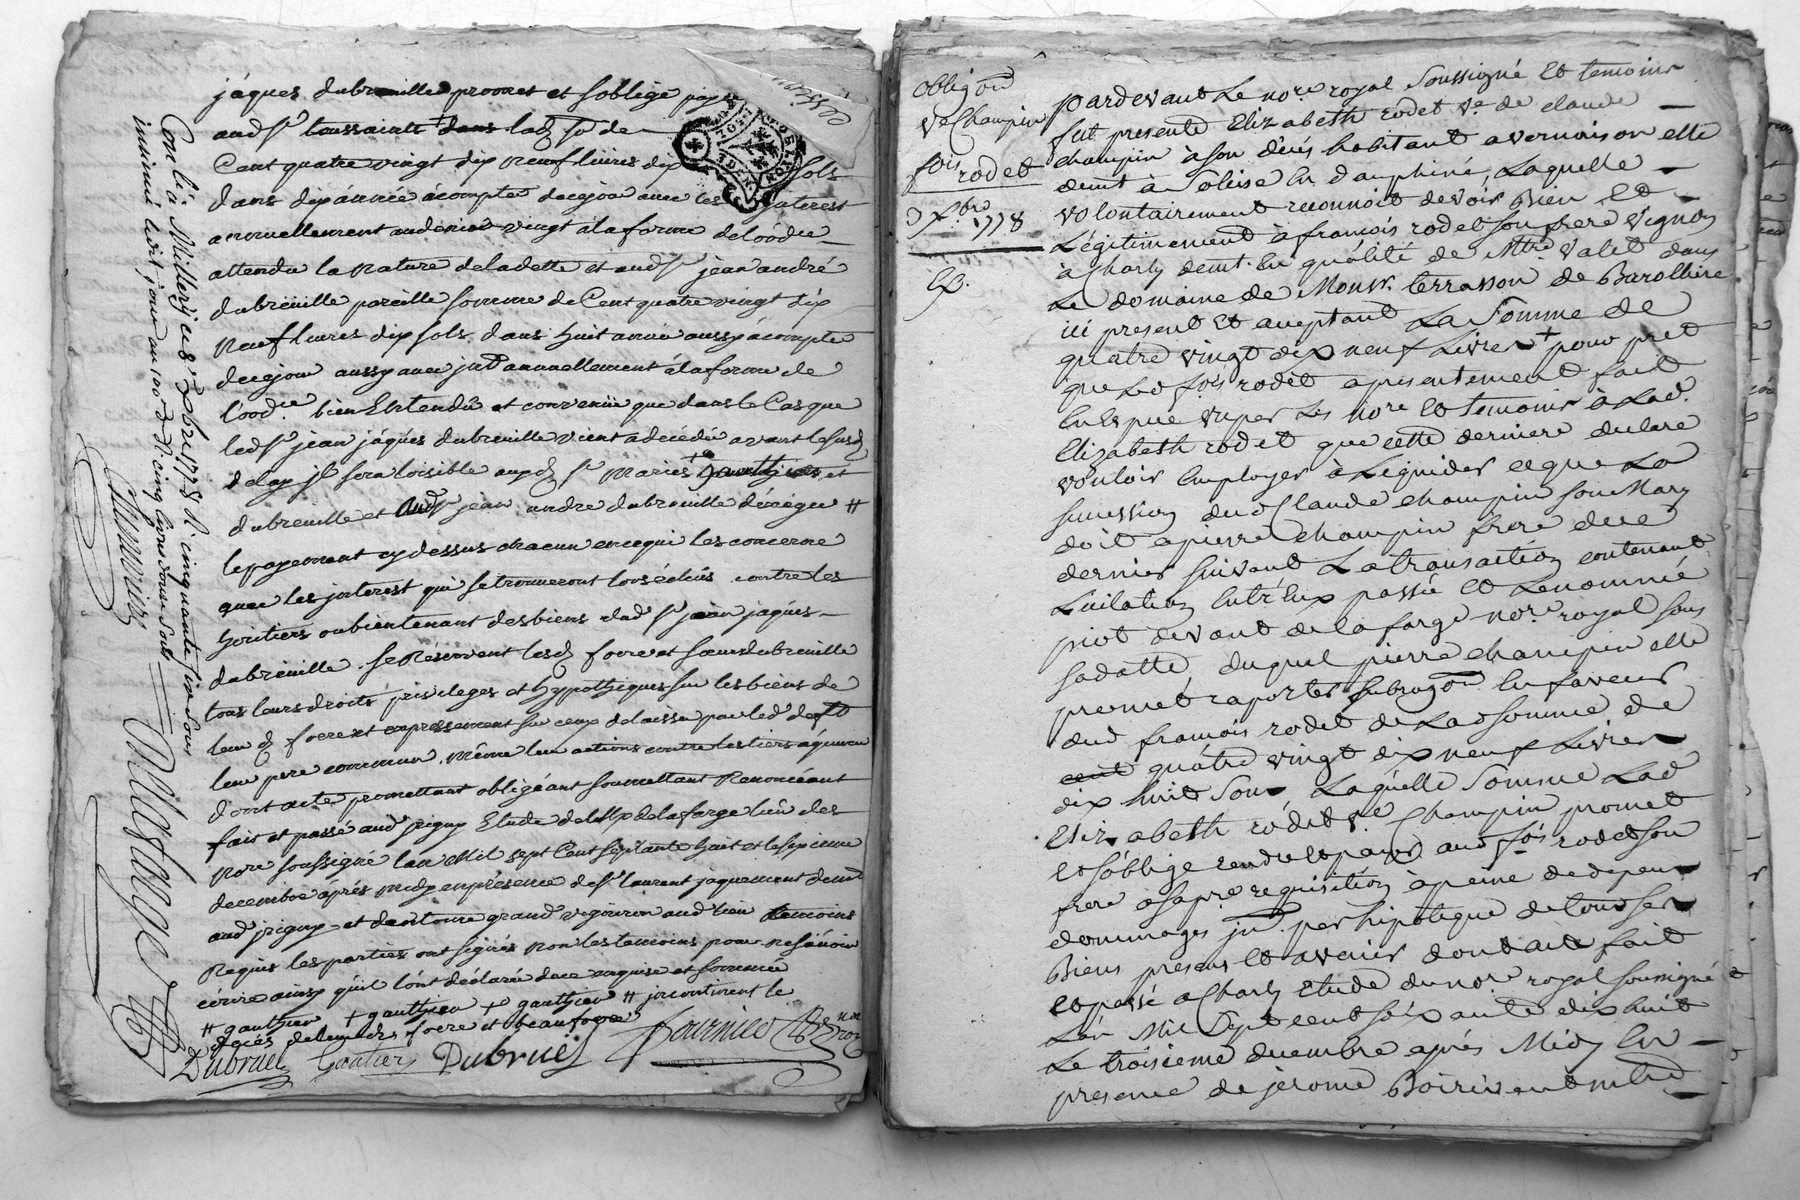 jáques dubreuille promet et soblige paye
aud sr toussainte + dans lad so de
Cent quatre vingt dix neuf livres dix sols
dans dix année acompte decejour avec les jnterest
annuellement audenier vingt àla forme delood.ce
attendu la nature deladette et aud sr jean andré
dubreüille pareille somme de Cent quatre vingt dix
neuf livres dix sols dans huit année aussy acompte
decejour aussy avec jnt annuellement àla forme de
lood.ce bien Entendû et convenüe que dans le Cas que
led sr jean jáqués dubreuille vient a décédé avant lesusd
delay jl sera loisible auxd sr Maries + gauthier et
dubreuille et aud sr jean andre dubreuille déxiger #
lepayement cy dessus chacun encequi les concerne
avec les jnterest qui se trouveront lors échûs contre les
héritiers oubientenant desbiens dud sr jean jaqués
dubreüille . se Réservent lesd frere et sœur dubreuille
tous leurs droits privileges et hypothèques sur lesbiens de
leur d frere et expressement sur ceux delaissé par led deffd
leur pere commun, même leur actions contre lestiers aqueureur
dont acte promettant obligéant soumettant Renonceant
fait et passé aud jrigny Etude de Me delafarge lieu des
nore soussigné lan Mil sept Cent septante huit et le sixieme
decembre aprés midy enpresence de sr laurent jaquemont demt
aud jrigny et dantoine grand vigneron aud lieu temoins
Requis les parties ont signés non les temoins pour ne sçavoir
écrire ainsy quil lónt déclaré dece enquise et sommée
# gauthier + gauthier + gauthier # jncontinent le
décés delemd frere et beaufrere
Dubruel Gautier Dubruel fournier
Con.lé à Millery ce 8 Xbre 1778 R cinquante tin sous
insinué led.t jour au 100 d. d. cinq livres douze sous
Obligõn
Ve Champin
fois rodet
3 Xbre 1778
Ex.
pardevant Le nore royal soussigné Et temoins
fut presente Elizabeth rodet ve de claude
champin àson décés habitant avernaison elle
demt à Solaise En dauphiné, Laquelle
volontairement reconnoit devoir Bien Et
Légitimement à francois rodet son frere vigneron
à Charly demt. En quálité de Mtre Valet dans
Le domaine de Monsr. terrasson de Barolliere
ici present Et aceptant La Somme de
quatre vingt dix neuf Livres + pour pret
que Led fois rodet apresentement fait
En Espece vu par Les nore Et temoins à Lad.
Elizabeth rodet que cette derniere declare
vouloir Employer à Liquider ce que La
succession dud Claude champin son Mary
doit à pierre Champin frere de ce
dernier suivant La transaction contenant
Licitation Entr'Eux passée Et Lenommé
piot devant delafarge nore royal sous
sa datte, duquel pierre champin elle
promet raporter subrogõn En faveur
dud francois rodet de Lad somme de
cent quátre vingt dix neuf Livres
dix huit Sous, Laquelle Somme Lad
Eliz abeth rodet ve Champin promet
Et s'oblige rendre Et payer aud fois rodet son
frere à sa pre requisition à peine de depens
dommages jnt. par hipoteque de tous ses
Biens presens Et avenir dont acte fait
et passé à Charly Etude du nore royal soussigné
L'an Mil Sept cent soixante dix huit
Le troisieme decembre aprés Midy En
presence de jerome Boiriven mtre